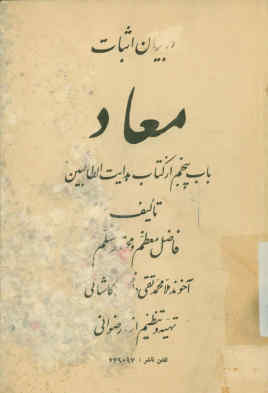 در بیان اثبات
معاد
باب پنجم از کتاب هدایت الطالبین
تألیف
فاضل معظم و محترم مسلم
آخوند ملا محمد تقی کاشانی
تهیه و تنظیم از: رضوانی
تلفن ناشر :